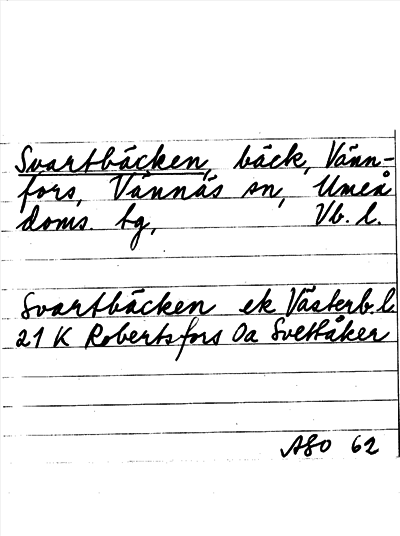 Svartbäcken, bäck, Vänn-
fors, Vännäs sn, Umeå
doms. tg, Vb. l.
Svartbäcken ek Västerb. l
21 K Robertsfors 0a Svettåker
ASO 62